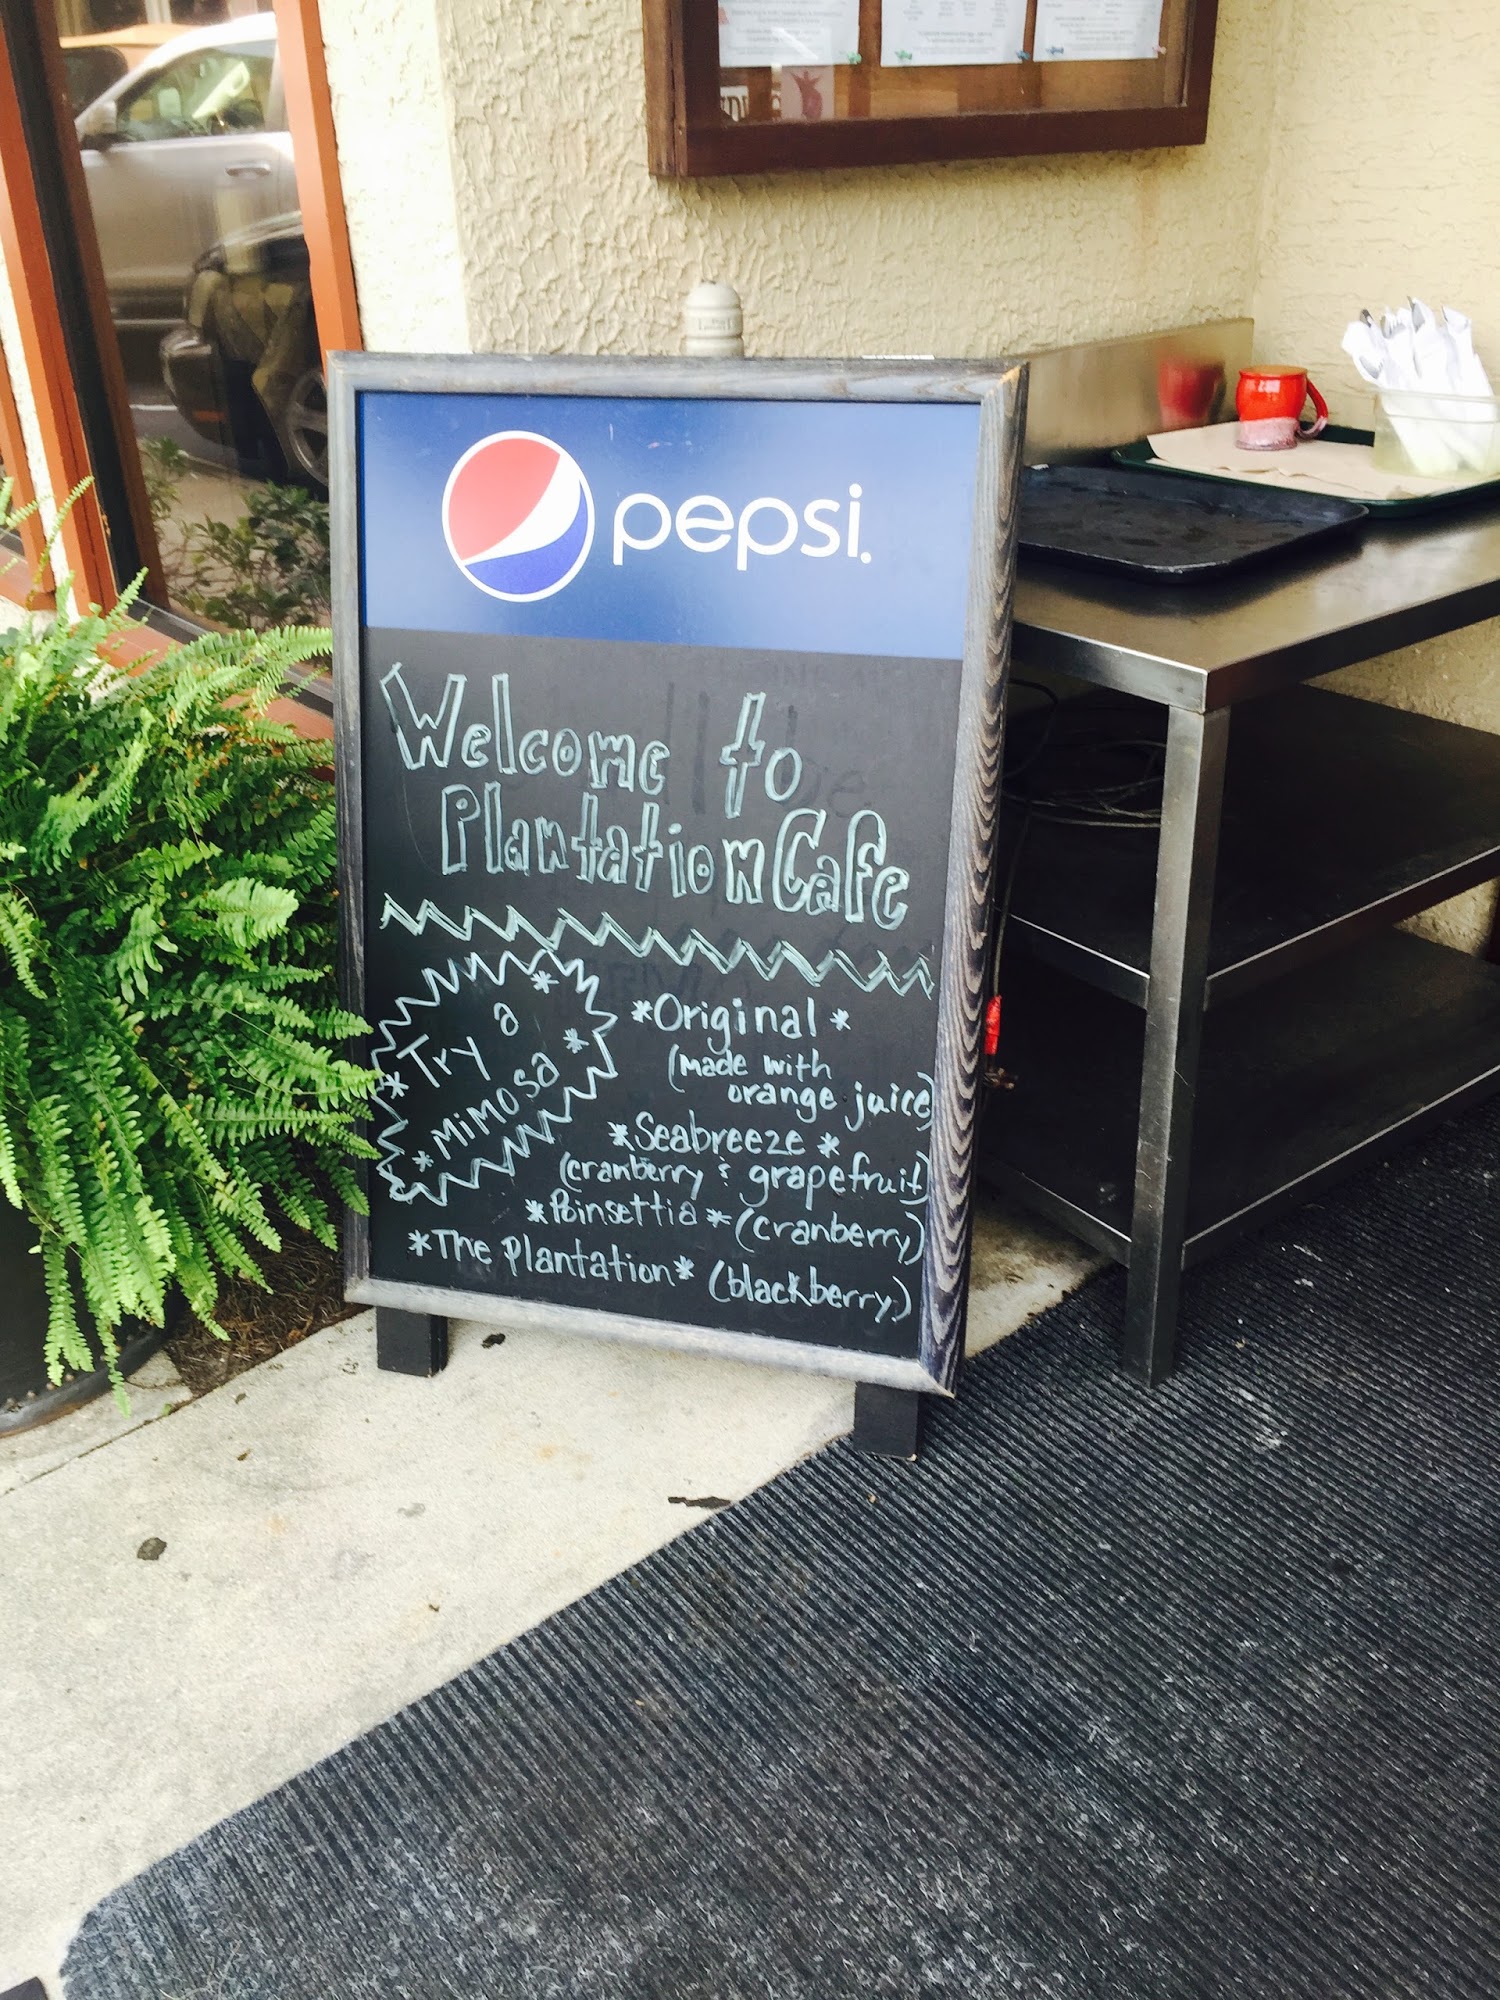 pepsi.
Welcome to
Plantation Cafe
Try
a
Mimosa
*Original*
(made with
orange juice)
*Seabreeze*
(cranberry & grapefruit)
*Poinsettia* (cranberry)
*The Plantation* (blackberry)